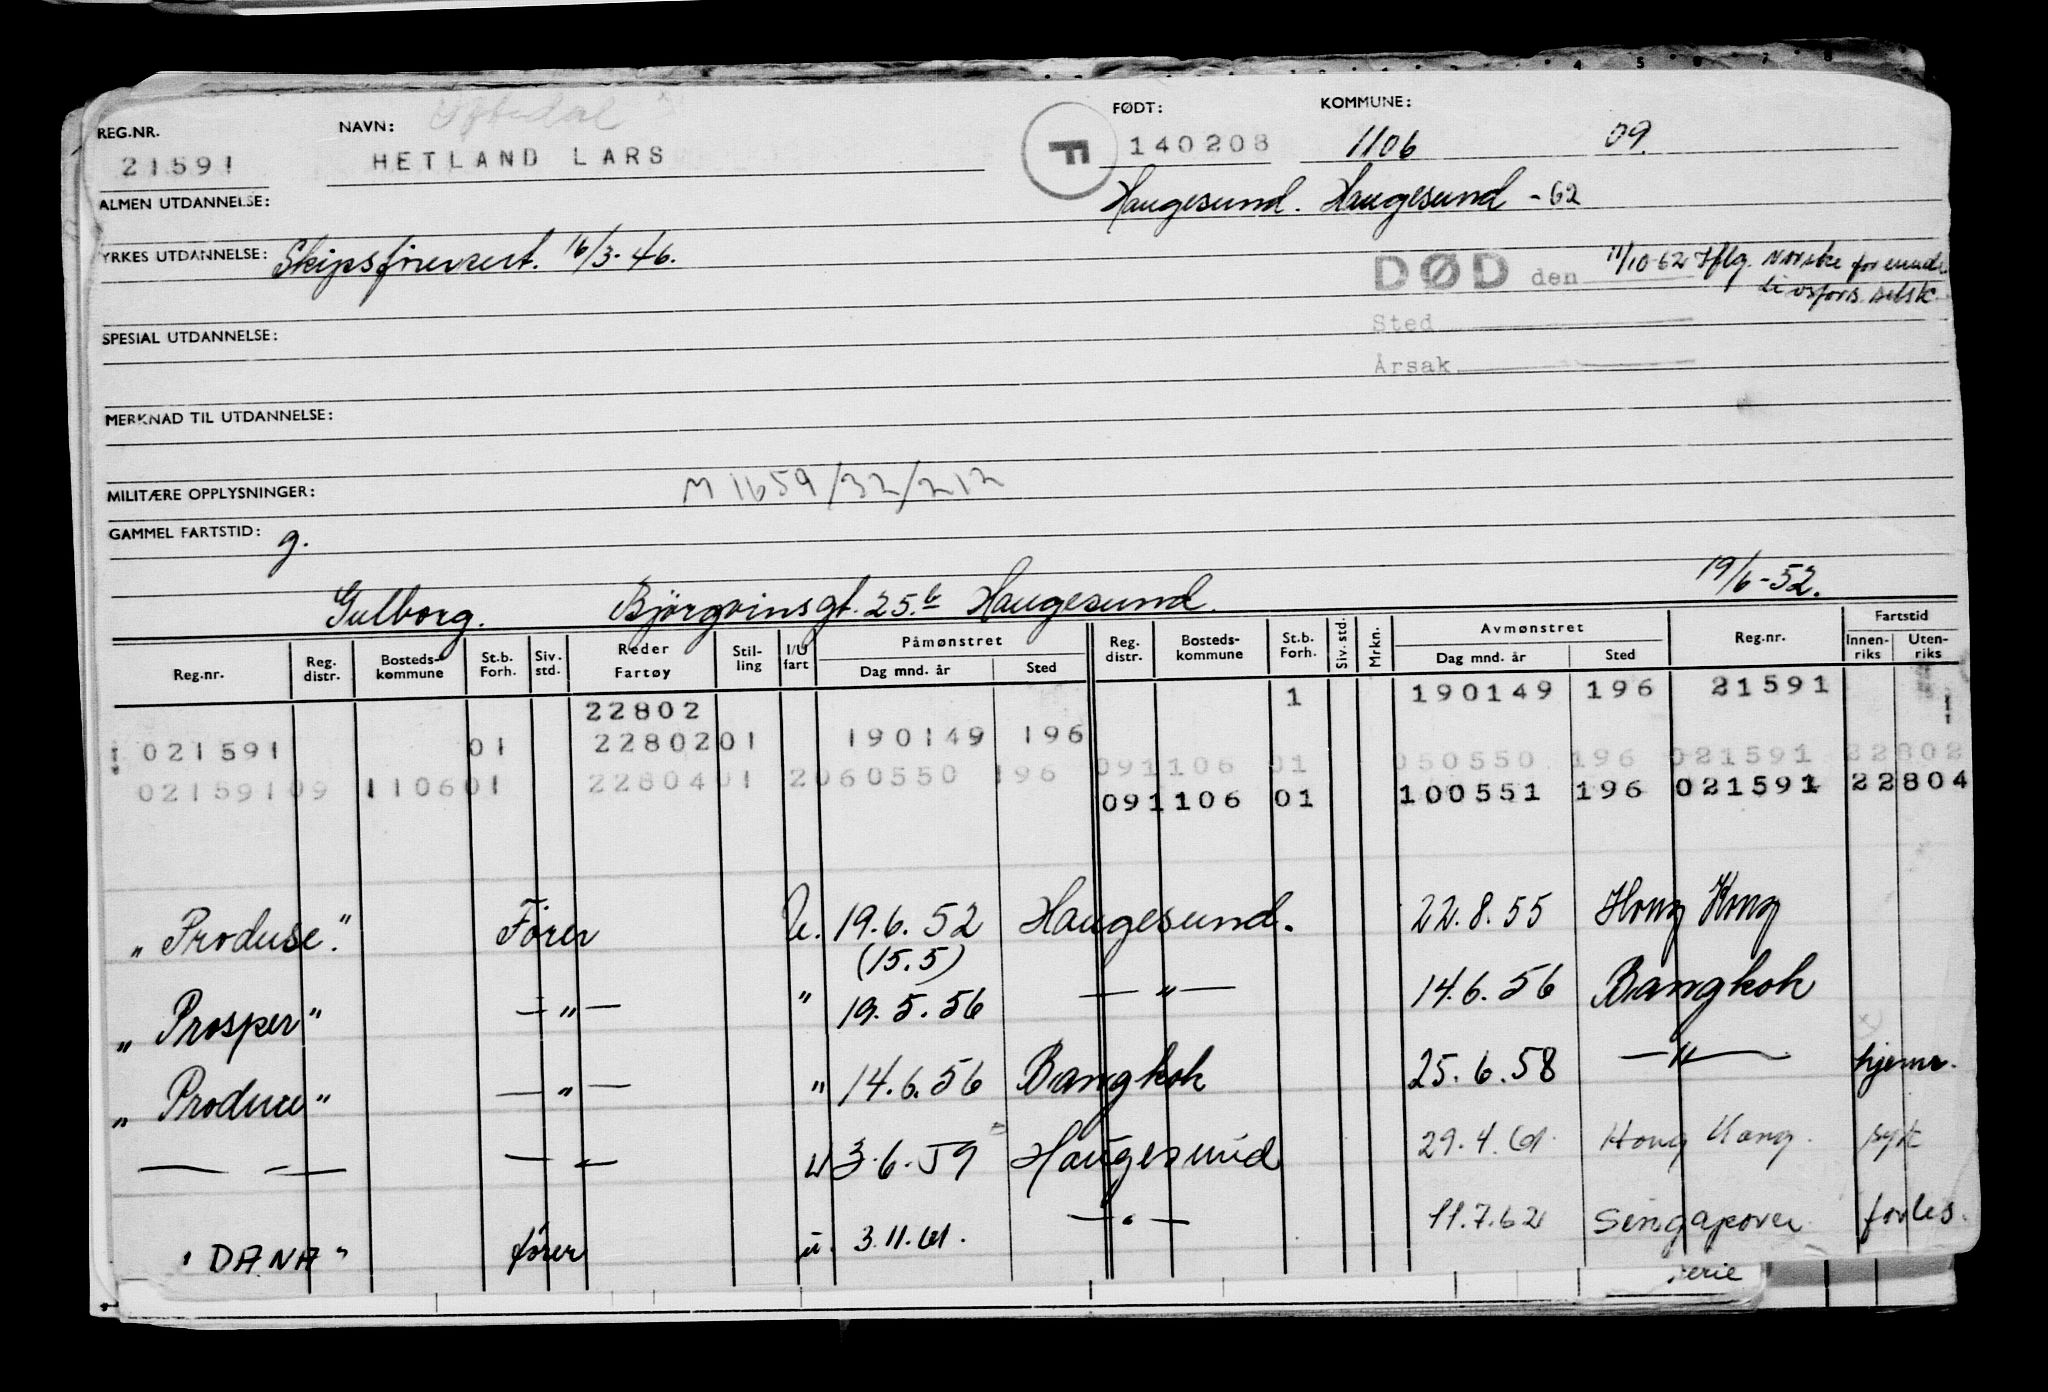 REG.NR. NAVN: FØDT: KOMMUNE:
21591 HETLAND LARS F 140208 1106 09.
ALMEN UTDANNELSE: Haugesund. Haugesund - 62
YRKES UTDANNELSE: Skipsförersert. 16/3-46.
DØD den 11/10-62 Iflg. Norske forenede
livsfors. selsk.
Sted
SPESIAL UTDANNELSE:
Årsak
MERKNAD TIL UTDANNELSE:
MILITÆRE OPPLYSNINGER: M 1659/32/212
GAMMEL FARTSTID: g.
Gulborg. Björgvinsgt. 25.b Haugesund. 19/6-52.
Reg.nr. Reg. distr. Bosteds-kommune St.b. Forh. Siv. std. Reder Fartøy Stil-ling I/U fart Påmønstret Dag mnd. år Sted Reg. distr. Bosteds-kommune St.b. Forh. Siv. std. Mrkn. Avmønstret Dag mnd. år Sted Reg.nr. Fartstid Innen-riks Uten-riks
22802 1 190149 196 21591
021591 01 2280201 190149 196 091106 01 050550 196 021591 22802
02159109 110601 2280401 2060550 196 091106 01 100551 196 021591 22804
„Produse." Förer U. 19.6.52 Haugesund. 22.8.55 Hong Kong
(15.5)
„Prosper" — " — " 19.5.56 — " — 14.6.56 Bangkok
„Produce" — " — " 14.6.56 Bangkok 25.6.58 — " — hjemr.
— " — — " — u 3.6.59 Haugesund 29.4.61. Hong Kong. syk
"DANA" förer u. 3.11.61. — " — 11.7.62 Singapore forlis.
serie